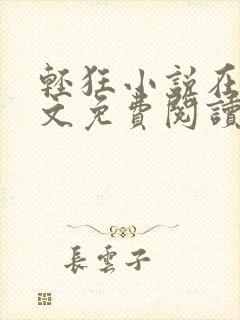 輕狂小說在
文免費閱讀
長雲子